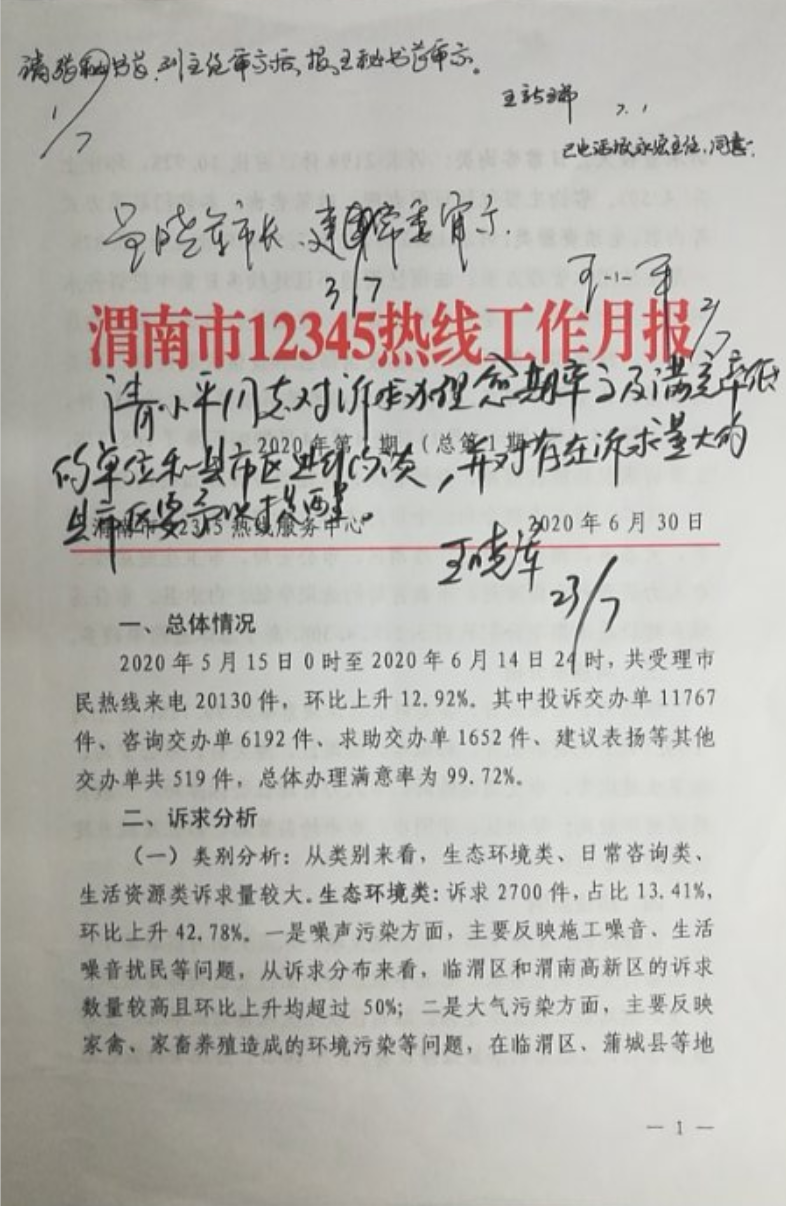 请张秘书长、刘主任审示后,报王秘书长审示。
1/7
7.1
已电话报永宏主任,同意。
呈晓军市长、建国常委审示.
3/7
2/7
渭南市12345热线工作月报
请小平同志对诉求办理愈期率高及满意率低
2020年第 期 (总第1期)
的单位和县市区进行约谈,并对存在诉求量大的
县市区要予以提醒。
渭南市12345热线服务中心 2020年6月30日
23/7
一、总体情况
2020年5月15日0时至2020年6月14日24时,共受理市
民热线来电20130件,环比上升12.92%。其中投诉交办单11767
件、咨询交办单6192件、求助交办单1652件、建议表扬等其他
交办单共519件,总体办理满意率为99.72%。
二、诉求分析
(一)类别分析:从类别来看,生态环境类、日常咨询类、
生活资源类诉求量较大。生态环境类:诉求2700件,占比13.41%,
环比上升42.78%。一是噪声污染方面,主要反映施工噪音、生活
噪音扰民等问题,从诉求分布来看,临渭区和渭南高新区的诉求
数量较高且环比上升均超过50%;二是大气污染方面,主要反映
家禽、家畜养殖造成的环境污染等问题,在临渭区、蒲城县等地
— 1 —